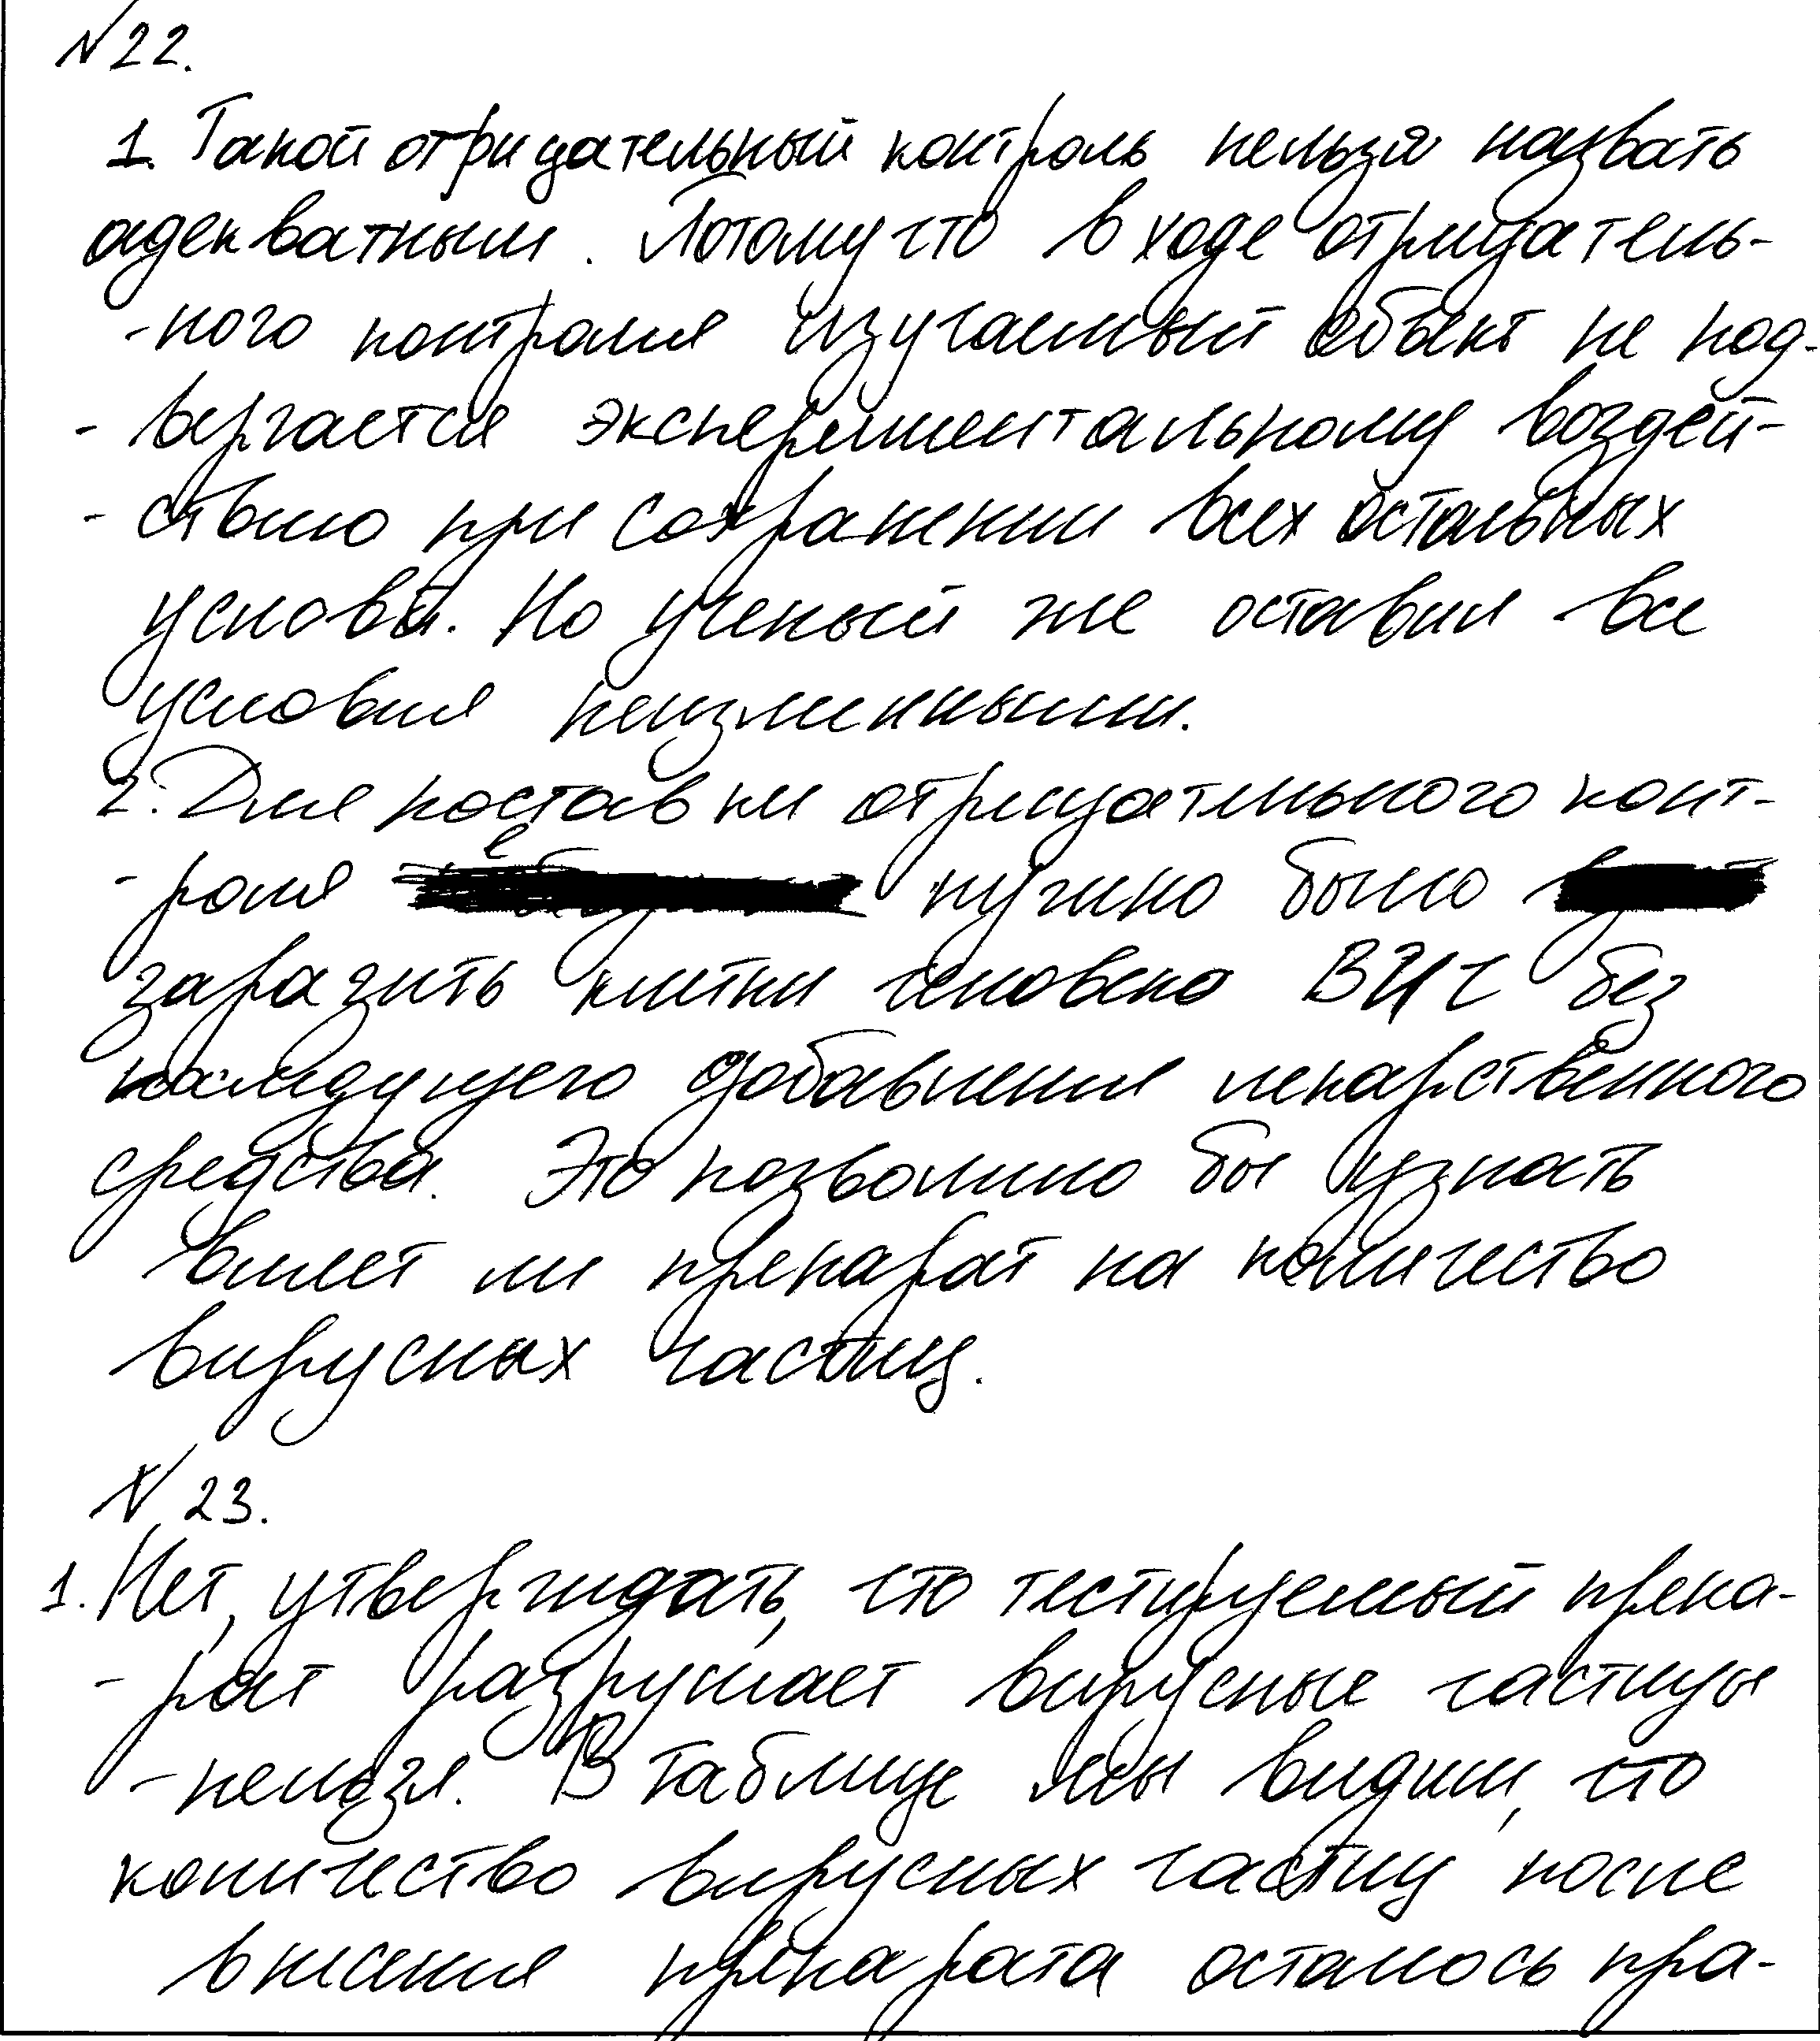 № 22.
1. Такой отрицательный контроль нельзя назвать
адекватным. Потому что в ходе отрицатель-
-ного контроля изучаемый объект не под-
-вергается экспериментальному воздей-
-ствию при сохранении всех остальных
условий. Но ученый же оставил все
условия неизменными.
2. Для поставки отрицательного конт-
-роля нужно было
заразить клетки человека ВИЧ без
последующего добавления лекарственного
средства. Это позволило бы узнать
влияет ли препарат на количество
вирусных частиц.
№ 23.
1. Нет, утверждать, что тестируемый препа-
-рат разрушает вирусные частицы
- нельзя. В таблице мы видим, что
количество вирусных частиц после
внесения препарата осталось пра-